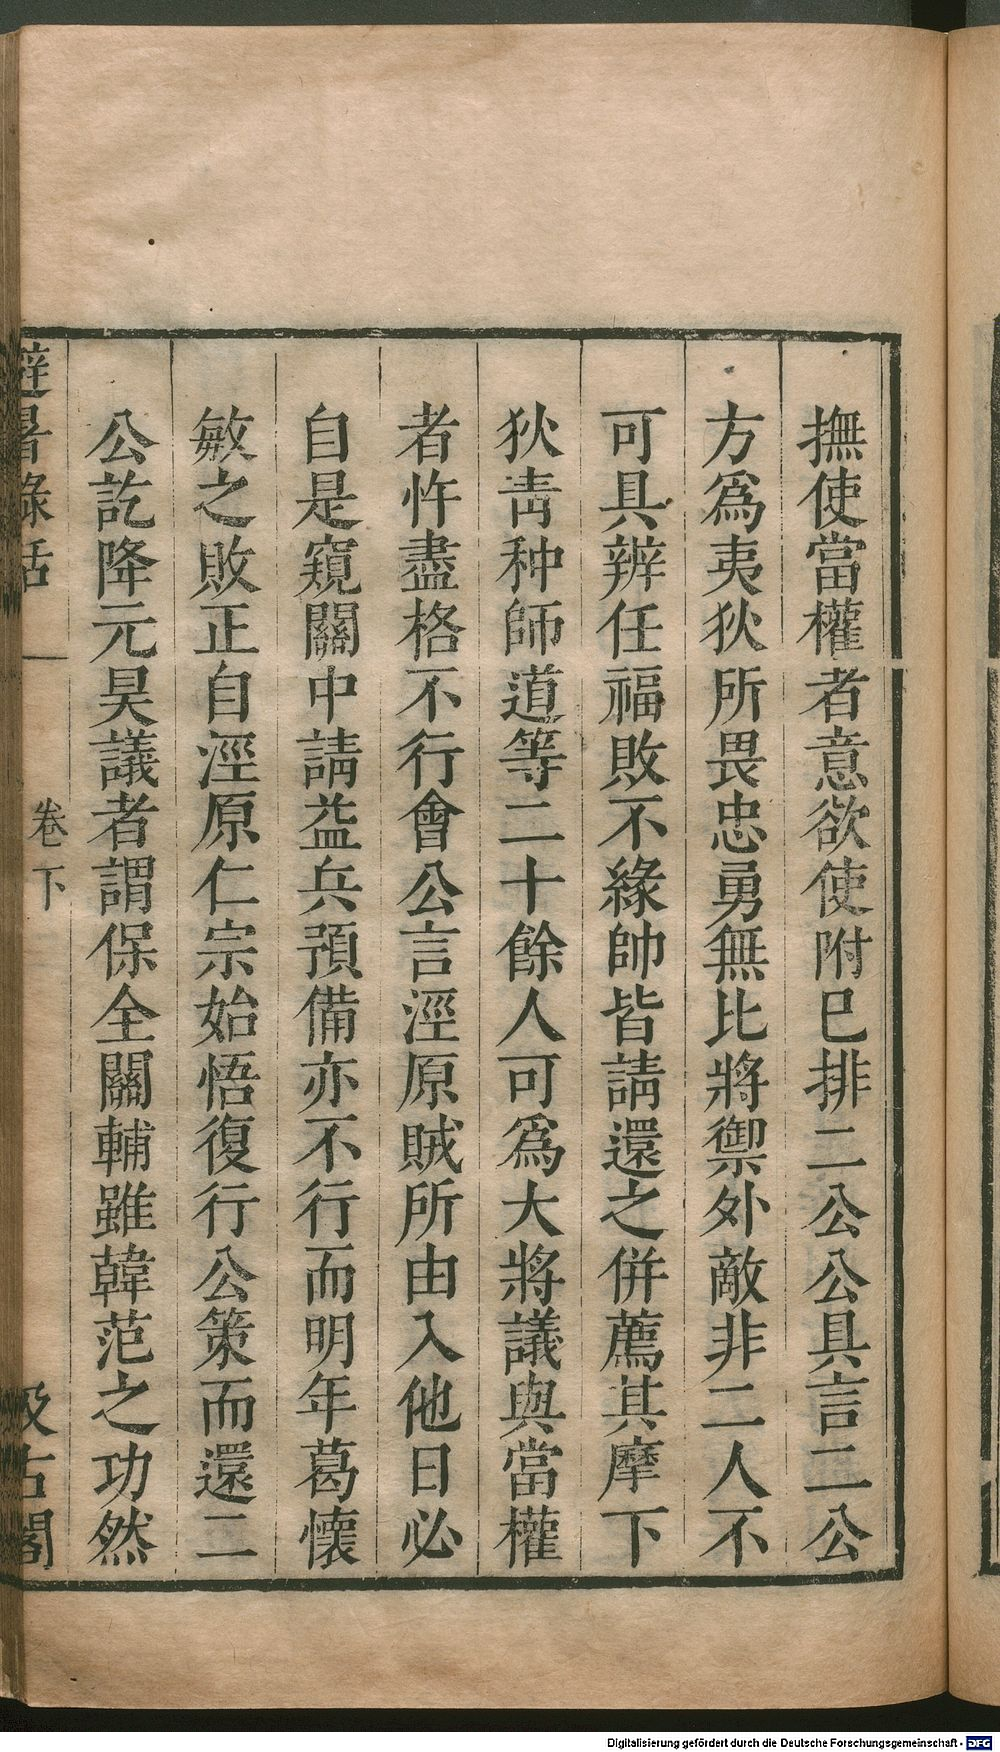 撫使當權者意欲使附巳排二公公具言二公
方爲夷狄所畏忠勇無比將禦外敵非二人不
可具辨任福敗不緣帥皆請還之併薦其摩下
狄靑种師道等二十餘人可爲大將議與當權
者忤盡格不行會公言涇原賊所由入他日必
自是窺關中請益兵預備亦不行而明年葛懷
敏之敗正自涇原仁宗始悟復行公策而還二
公訖降元昊議者謂保全關輔雖韓范之功然
避暑錄話
卷下
汲古閣
Digitalisierung gefördert durch die Deutsche Forschungsgemeinschaft - DFG